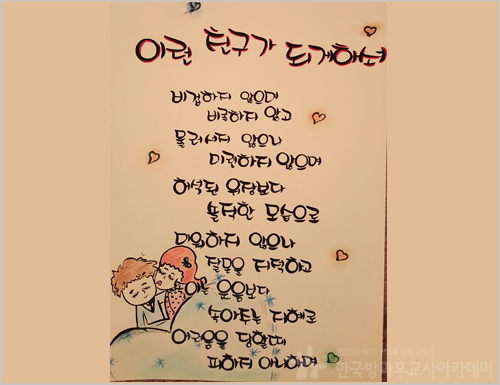 이런 친구가 되게하셔
비겁하지 않으며
비굴하지 않고
물러서지 않으나
미련하지 않으며
위장보다
솔직한 모습으로
미워하지 않으나
잘못을 지적하고
웃음보다
지혜로
어려움을 당할때
피하지 아니하며
한국방과후교사아카데미